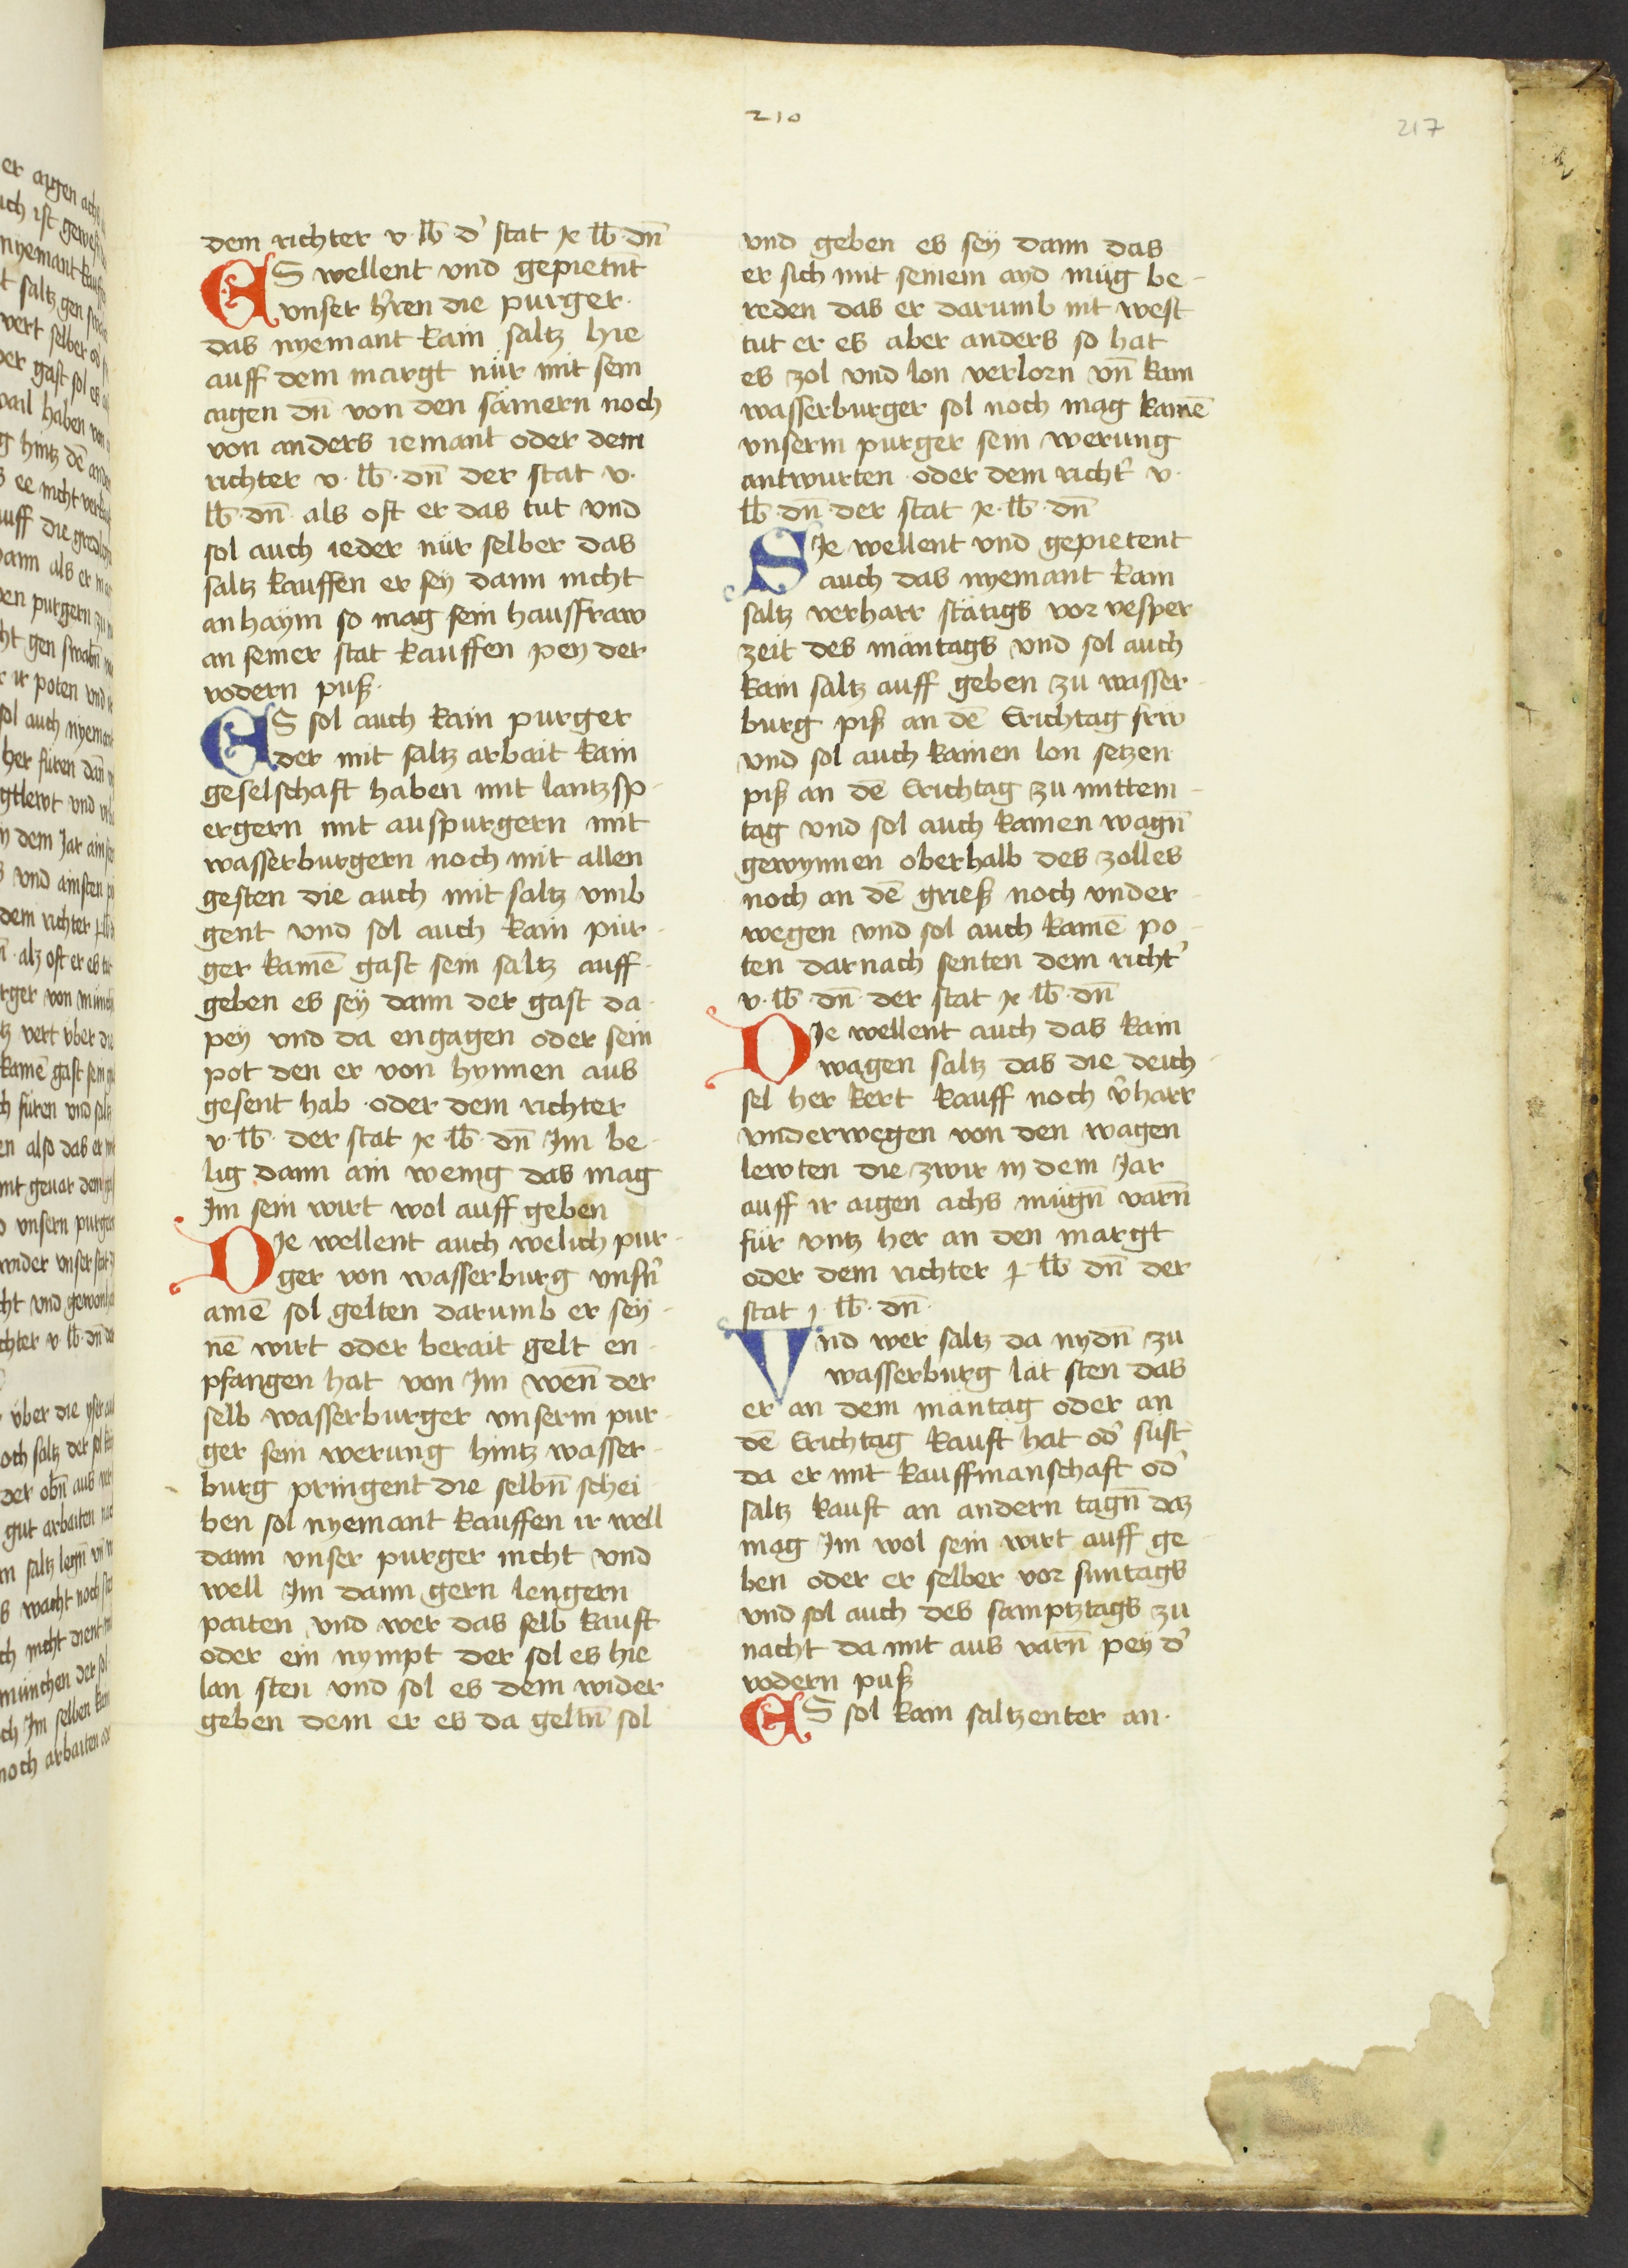 210
217
dem richter v lb d' stat x lb dn̄
ES wellent vnd gepietn̄t
vnser h'ren die purger.
das nyemant kain saltz hie
auff dem margt nür mit sein
aigen dn̄ von den sämern noch
von anders iemant oder dem
richter v. lb. dn̄ der stat v.
lb. dn̄ als oft er das tut vnd
sol auch ieder nür selber das
saltz kauffen er sey dann nicht
anhaym so mag sein hauffraw
an seiner stat kauffen pey der
vodern puß.
ES sol auch kain purger
der mit saltz arbait kain
geselschaft haben mit lantzsp-
ergern mit auspurgern mit
wasserburgern noch mit allen
gesten die auch mit saltz vmb
gent vnd sol auch kain pur-
ger kainē gast sein saltz auff-
geben es sey dann der gast da-
pey vnd da engagen oder sein
pot den er von hynnen aus
gesent hab oder dem richter
v. lb. der stat x lb. dn̄ Im be-
lig dann ain wenig das mag
Im sein wirt wol auff geben
DIe wellent auch welich pur-
ger von wasserburg vnsn̄'
ainē sol gelten darumb er sey-
nē wirt oder berait gelt en-
pfangen hat von Im wen̄ der
selb wasserburger vnserm pur-
ger sein werung hintz wasser-
burg pringent die selbn̄ schei-
ben sol nyemant kauffen ir well
dann vnser purger nicht vnd
well Im dann gern lengern
paiten vnd wer das selb kauft
oder ein nympt der sol es hie
lan sten vnd sol es dem wider
geben dem er es da geltn̄ sol
vnd geben es sey dann das
er sich mit seinem aid müg be-
reden das er darumb nit west
tut er es aber anders so hat
es zol vnd lon verlorn vn̄ kain
wasserburger sol noch mag kainē
vnserm purger sein werung
antwurten oder dem richt' v.
lb. dn̄ der stat x. lb. dn̄
SIe wellent vnd gepietent
auch das nyemant kain
saltz verharr stätigs vor vesper
zeit des mäntags vnd sol auch
kain saltz auff geben zu wasser-
burg piß an dē Erichtag frw
vnd sol auch kainen lon setzen
piß an dē Erichtag zu mittem-
tag vnd sol auch kainen wagn̄
gewynnen oberhalb des zolles
noch an dē grieß noch vnder-
wegen vnd sol auch kainē po-
ten darnach senten dem richt'
v. lb. dn̄ der stat x lb dn̄
DIe wellent auch das kain
wagen saltz das die deich-
sel her kert kauff noch v'harr
vnderwegen von den wagen
lewten die zwir in dem Jar
auff ir aigen achs mügn̄ varn̄
für vntz her an den margt
oder dem richter j lb dn̄ der
stat j. lb. dn̄.
Vnd wer saltz da nydn̄ zu
wasserburg lät sten das
er an dem mäntag oder an
dē Erichtag kauft hat od' sust
da er mit kauffmanschaft od'
saltz kauft an andern tagn̄ daz
mag Im wol sein wirt auff ge-
ben oder er selber vor suntags
vnd sol auch des samptztags zu
nacht da mit aus varn̄ pey d'
vodern puß
ES sol kain saltzenter an.